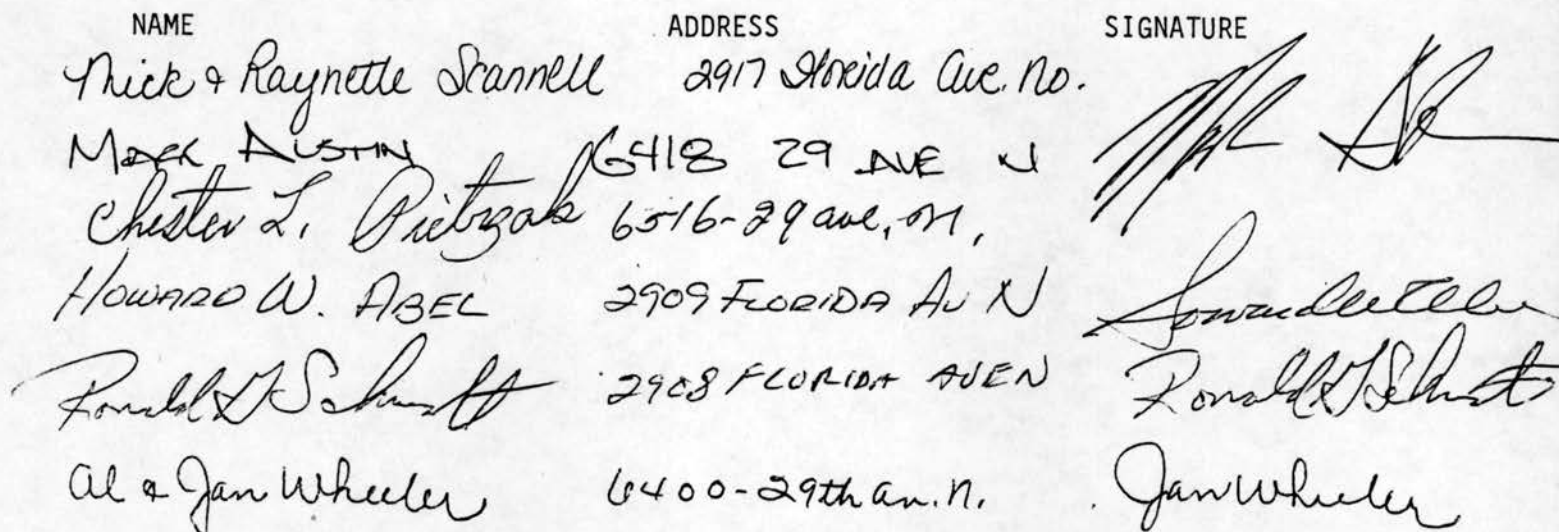 NAME ADDRESS SIGNATURE
Mick & Raynette Scannell 2917 Florida Ave. No.
MARK AUSTIN 6418 29 AVE N
Chester L. Pietrzak 6516-29 ave, N,
HOWARD W. ABEL 2909 FLORIDA AV N
Ronald G Schmidt 2908 FLORIDA AVE N Ronald G Schmidt
Al & Jan Wheeler 6400-29th av. n. Jan Wheeler